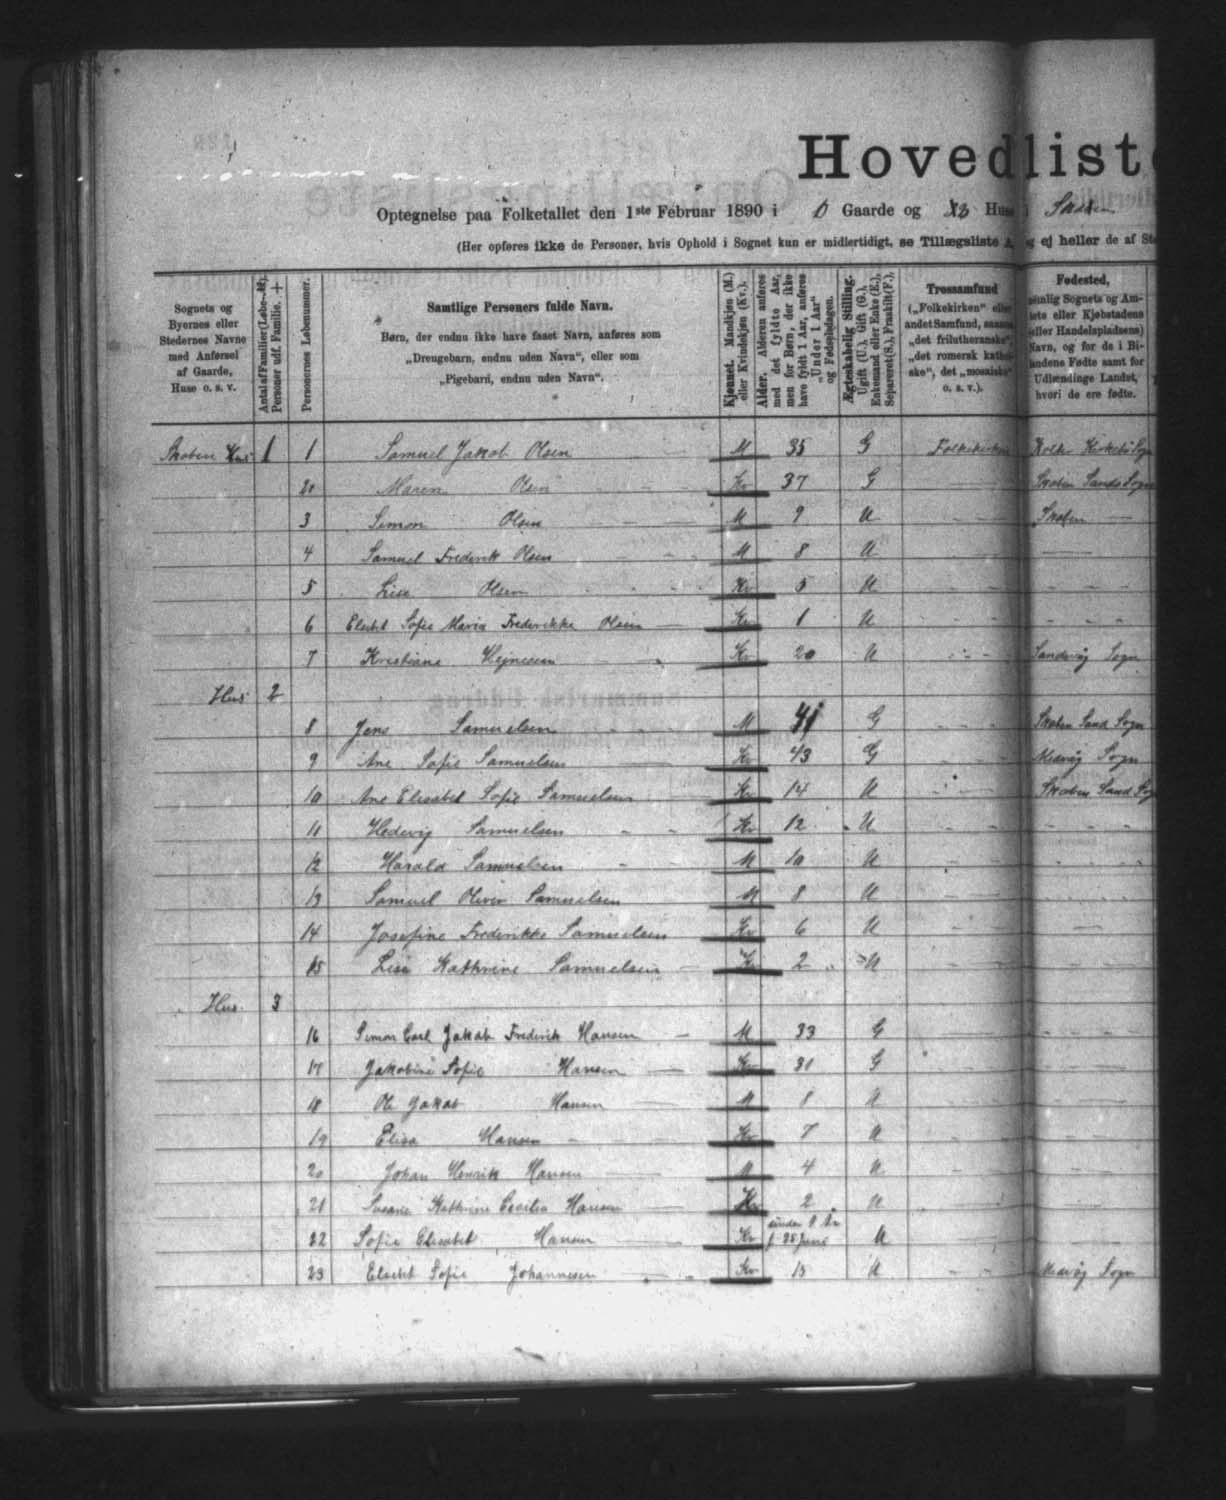 Hovedliste
Optegnelse paa Folketallet den 1ste Februar 1890 i 0 Gaarde og Huse i
(Her opføres ikke de Personer, hvis Ophold i Sognet kun er midlertidigt, se Tillægsliste A, og ej heller de af
Sognets og Byernes eller Stedernes Navne med Anførsel af Gaarde, Huse o. s. v.
Antal af Familier (Løbe-№). Personer udf. Familie. +
Personernes Løbenummer.
Samtlige Personers fulde Navn.
Børn, der endnu ikke have faaet Navn, anføres som
„Drengebarn, endnu uden Navn", eller som
„Pigebarn, endnu uden Navn".
Kjønnet. Mandkjøn (M.) eller Kvindekjøn (Kv.).
Alder. Alderen anføres med det fyldte Aar, men for Børn, der ikke have fyldt 1 Aar, anføres „Under 1 Aar" og Fødselsdagen.
Ægteskabelig Stilling. Ugift (U.), Gift (G.), Enkemand eller Enke (E.), Separeret (S.), Fraskilt (F.).
Trossamfund
(„Folkekirken" eller
andet Samfund, saasom
„det frilutheranske",
„det romersk katholske",
det „mosaiske"
o. s. v.).
Fødested,
nemlig Sognets og Amtets eller Kjøbstadens
(eller Handelspladsens)
Navn, og for de i Bilandene Fødte samt for
Udlændinge Landet,
hvori de ere fødte.
Hus 1 1 Samuel Jakob Olsen M 35 G Folkekirken
Maren Olsen Kv 37 G Sands Sogn
3 Simon Olsen M 9 U
4 Samuel Frederik Olsen M 8 U
5 Lise Olsen Kv 5 U
6 Elsebet Sofie Maria Frederikke Olsen Kv 1 U
7 Kristiane Hejnesen Kv 20 U Sandvåg Sogn
Hus 2
8 Jens Samuelsen M 41 G Sand Sogn
9 Ane Sofie Samuelsen Kv 43 G Midvåg Sogn
10 Ane Elisabet Sofie Samuelsen Kv 14 U Sand Sogn
11 Hedevig Samuelsen Kv 12 U
12 Harald Samuelsen M 10 U
13 Samuel Oliver Samuelsen M 8 U
14 Josefine Frederikke Samuelsen Kv 6 U
15 Lise Kathrine Samuelsen Kv 2 U
Hus 3
16 Simon Carl Jakob Frederik Hansen M 33 G
17 Jakobine Sofie Hansen Kv 31 G
18 Ole Jakob Hansen M 8 U
19 Elisa Hansen Kv 7 U
20 Johan Henrik Hansen M 4 U
21 Susanne Kathrine Cecilia Hansen Kv 2 U
22 Sofie Elisabet Hansen Kv under 1 År f. 25 Juni U
23 Elsebet Sofie Johannesen Kv 15 U Midvåg Sogn